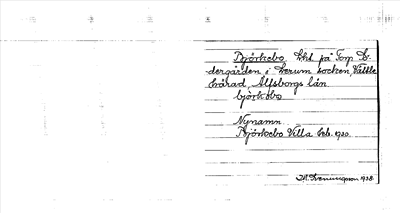 Björkebo, lht på Torp Ö-
dergården i Lerum socken, Vättle
härad, Älfsborgs län.
björkəbo
Nynamn.
Björkebo Villa beb. 1920.
1938.